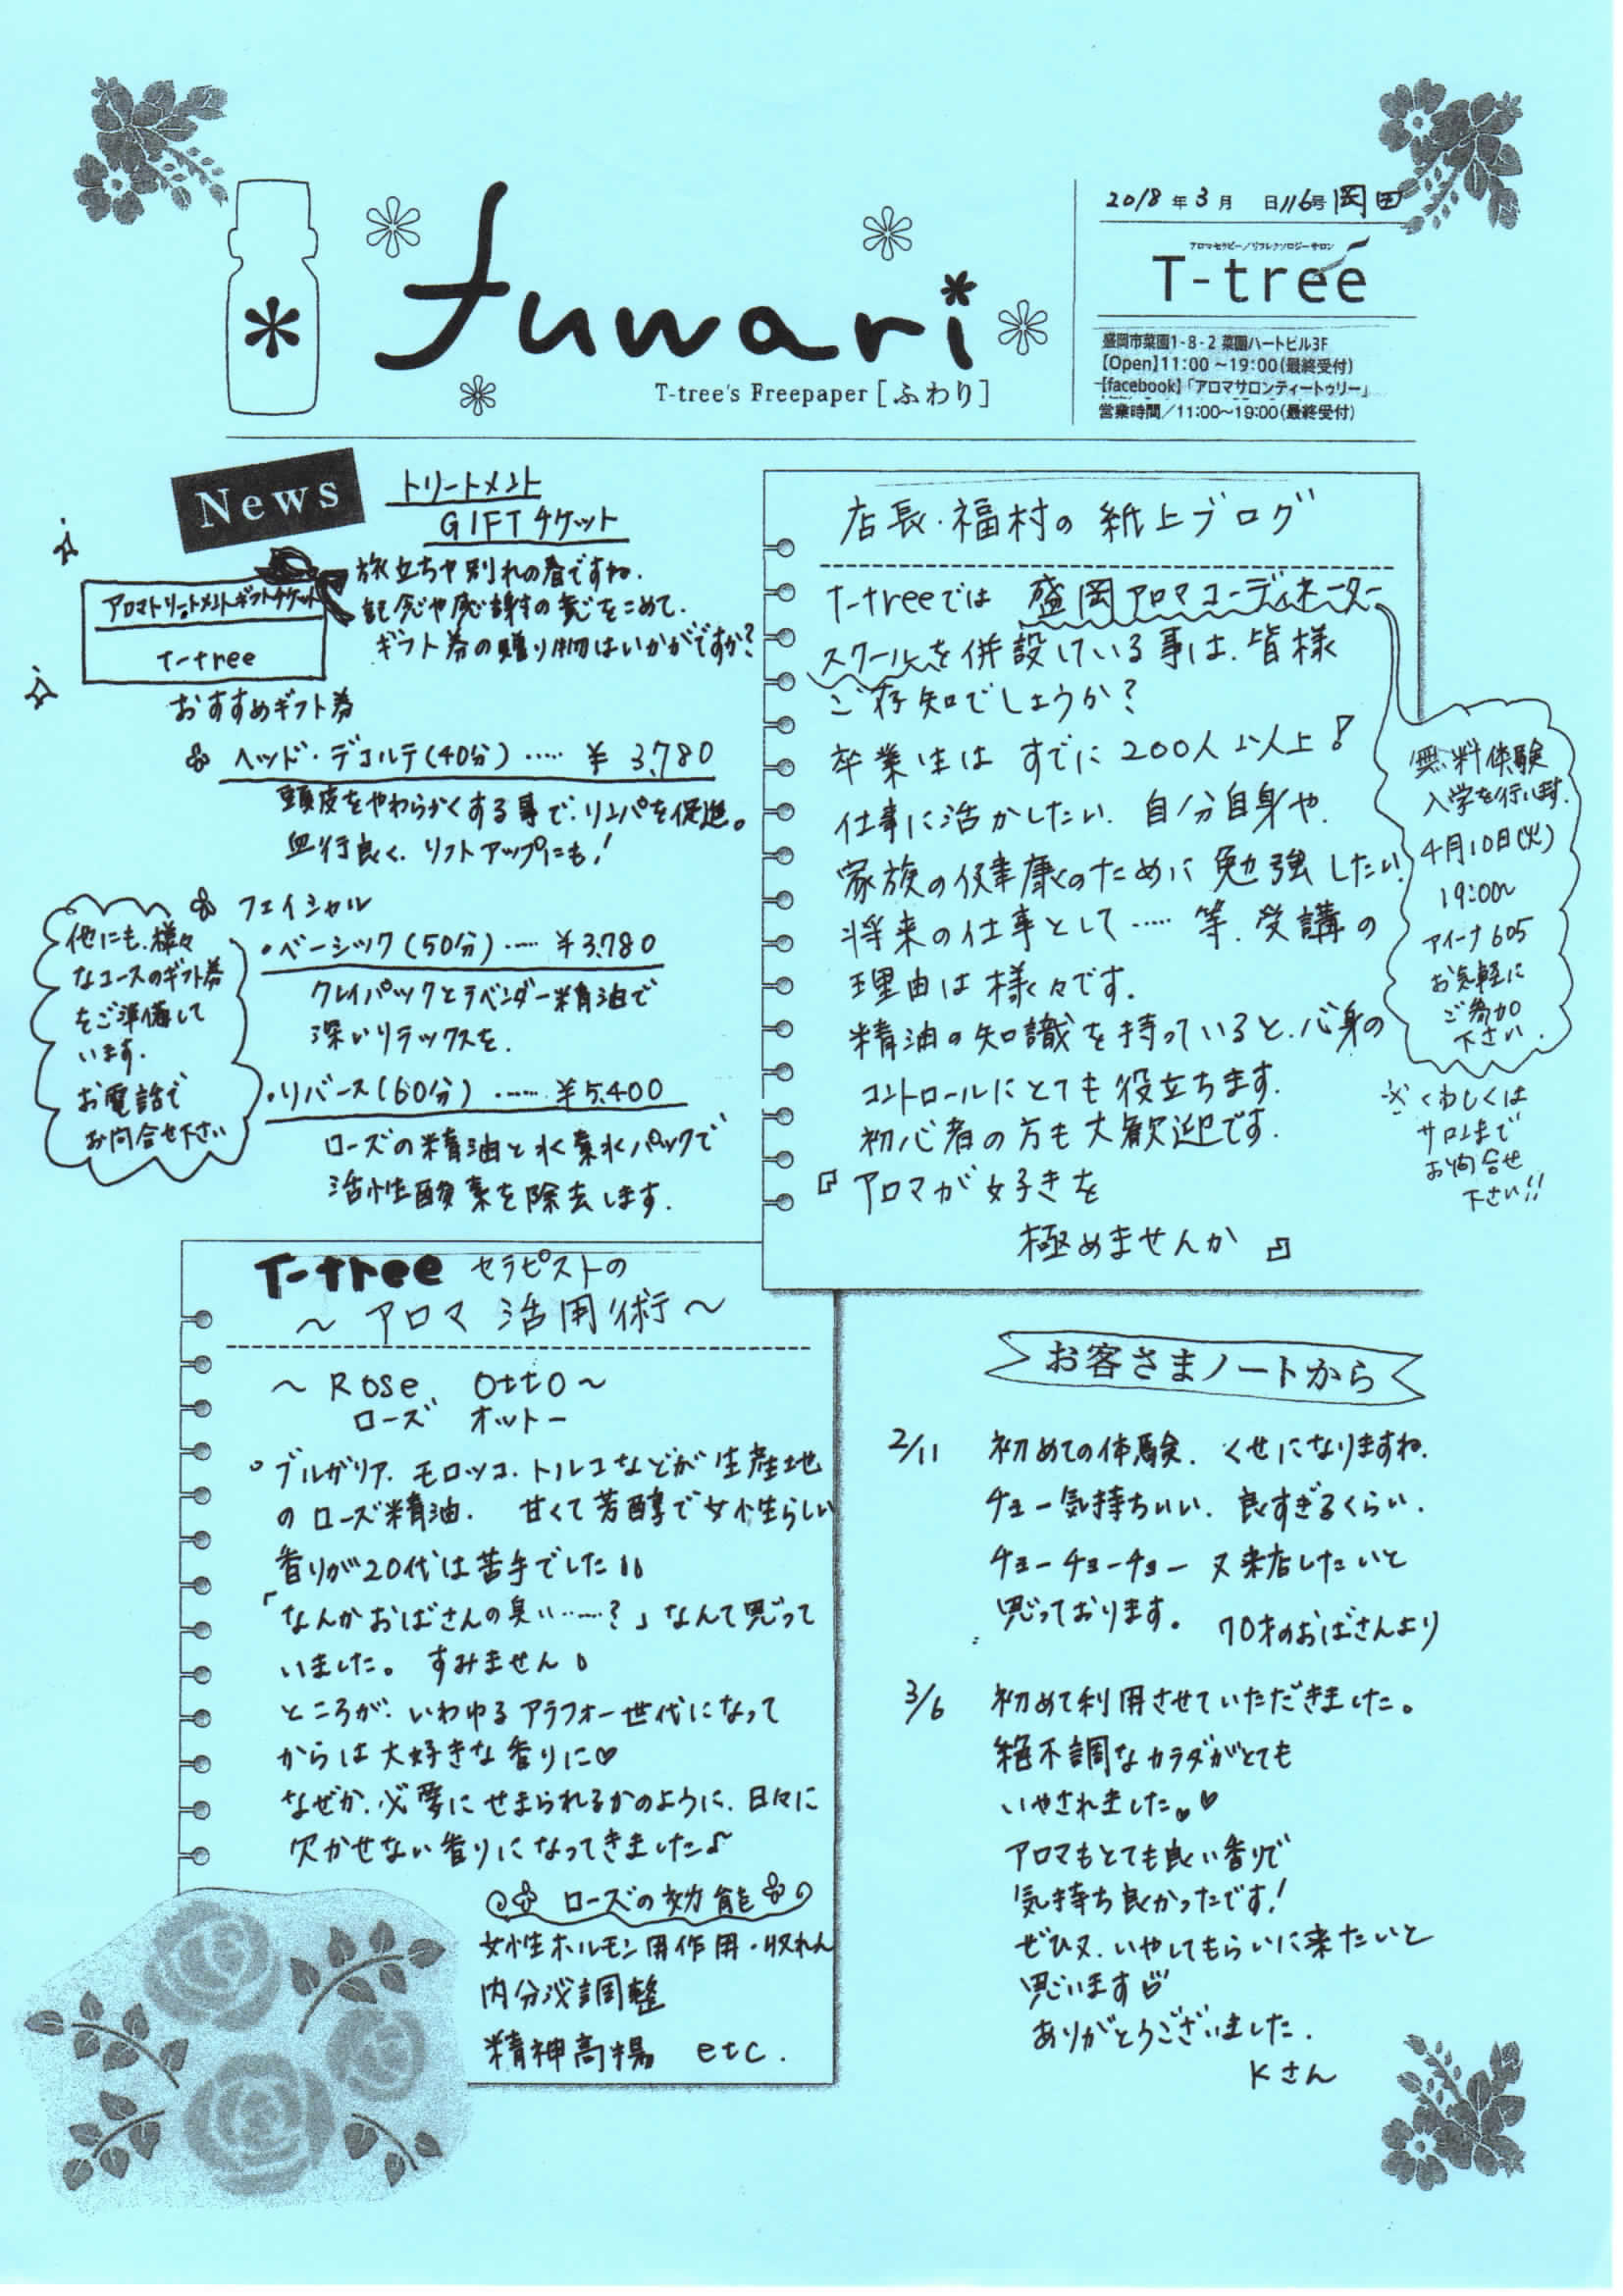 2018年3月 日116号 岡田
アロマセラピー／リフレクソロジーサロン
T-tree
盛岡市菜園1-8-2 菜園ハートビル3F
【Open】11:00～19:00(最終受付)
【facebook】「アロマサロンティートゥリー」
営業時間／11:00～19:00(最終受付)
fuwari
T-tree's Freepaper［ふわり］
News
トリートメント
GIFTチケット
旅立ちや別れの春ですね.
記念や感謝の意をこめて.
ギフト券の贈り物はいかがですか?
アロマトリートメントギフトチケット
T-tree
おすすめギフト券
ヘッド・デコルテ(40分)‥‥‥ ¥ 3,780
頭皮をやわらかくする事で.リンパを促進。
血行良く.リフトアップにも!
フェイシャル
・ベーシック(50分)‥‥‥¥3,780
クレイパックとラベンダー精油で
深いリラックスを.
・リバース(60分)‥‥‥¥5,400
ローズの精油と水素水パックで
活性酸素を除去します.
他にも.様々
なコースのギフト券
をご準備して
います.
お電話で
お問合せ下さい
店長・福村の紙上ブログ
T-treeでは 盛岡アロマコーディネーター
スクールを併設している事は.皆様
ご存知でしょうか?
卒業生は すでに200人以上!
仕事に活かしたい. 自分自身や.
家族の健康のために勉強したい.
将来の仕事として‥‥‥等.受講の
理由は様々です.
精油の知識を持っていると.心身の
コントロールにとても役立ちます.
初心者の方も大歓迎です.
『アロマが好きを
極めませんか』
無料体験
入学を行います.
4月10日(火)
19:00~
アイーナ605
お気軽に
ご参加
下さい.
※くわしくは
サロンまで
お問合せ
下さい!!
T-tree セラピストの
～アロマ 活用術～
～Rose Otto～
ローズ オットー
○ブルガリア.モロッコ.トルコなどが生産地
のローズ精油. 甘くて芳醇で女性らしい
香りが20代は苦手でした
「なんかおばさんの臭い‥‥‥?」なんて思って
いました。 すみません
ところが.いわゆるアラフォー世代になって
からは大好きな香りに♡
なぜか.必要にせまられるかのように.日々に
欠かせない香りになってきました♪
ローズの効能
女性ホルモン用作用・収れん
内分泌調整
精神高揚 etc.
お客さまノートから
2/11 初めての体験. くせになりますね.
チョー気持ちいい. 良すぎるくらい.
チョーチョーチョー 又来店したいと
思っております。 70才のおばさんより
3/6 初めて利用させていただきました。
絶不調なカラダがとても
いやされました。♡
アロマもとても良い香りで
気持ち良かったです!
ぜひ又.いやしてもらいに来たいと
思います♡
ありがとうございました.
Kさん